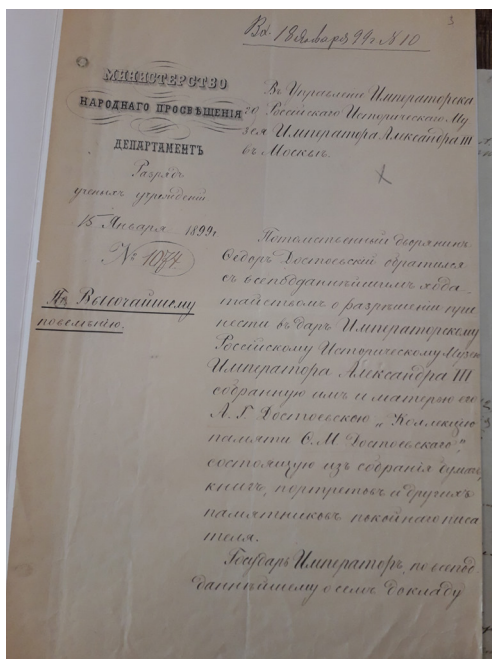 3
Вх. 18 Января 99 г. № 10
МИНИСТЕРСТВО
НАРОДНАГО ПРОСВѢЩЕНІЯ
ДЕПАРТАМЕНТЪ
Разрядъ
ученыхъ учрежденій
15 Января 1899 г.
№ 1074
По Высочайшему
повелѣнію.
Въ Управленіе Императорска
го Россійскаго Историческаго Му
зея Императора Александра III
въ Москвѣ.
Потомственный дворянинъ
Ѳедоръ Достоевскій обратился
съ всеподданнѣйшимъ хода
тайствомъ о разрѣшеніи при
нести въ даръ Императорскому
Россійскому Историческому Музею
Императора Александра III
собранную имъ и матерью его
А. Г. Достоевскою „Коллекцію
памяти Ѳ. М. Достоевскаго",
состоящую изъ собранія бумагъ,
книгъ, портретовъ и другихъ
памятниковъ покойнаго писа
теля.
Государь Императоръ, по всепод
даннѣйшему о семъ докладу